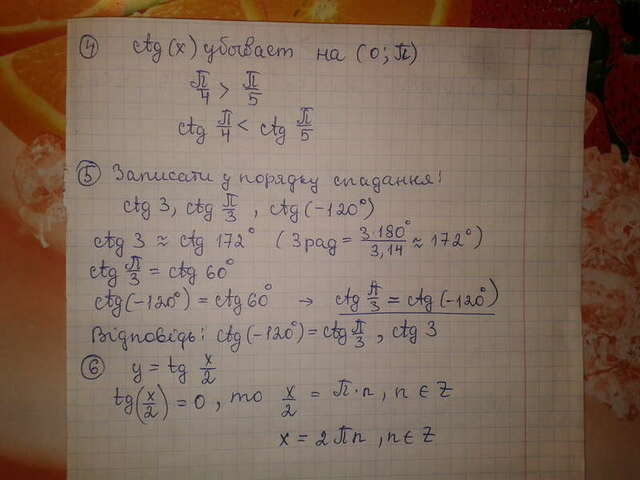 ④ ctg(x) убывает на (0; П)
П/4 > П/5
ctg П/4 < ctg П/5
⑤ Записати у порядку спадання!
ctg 3, ctg П/3, ctg(-120°)
ctg 3 ≈ ctg 172° (3рад = 3·180°/3,14 ≈ 172°)
ctg П/3 = ctg 60°
ctg(-120°) = ctg 60° → ctg П/3 = ctg(-120°)
Відповідь: ctg(-120°) = ctg П/3, ctg 3
⑥ y = tg x/2
tg(x/2) = 0, то x/2 = П·n, n ∈ Z
x = 2Пn, n ∈ Z